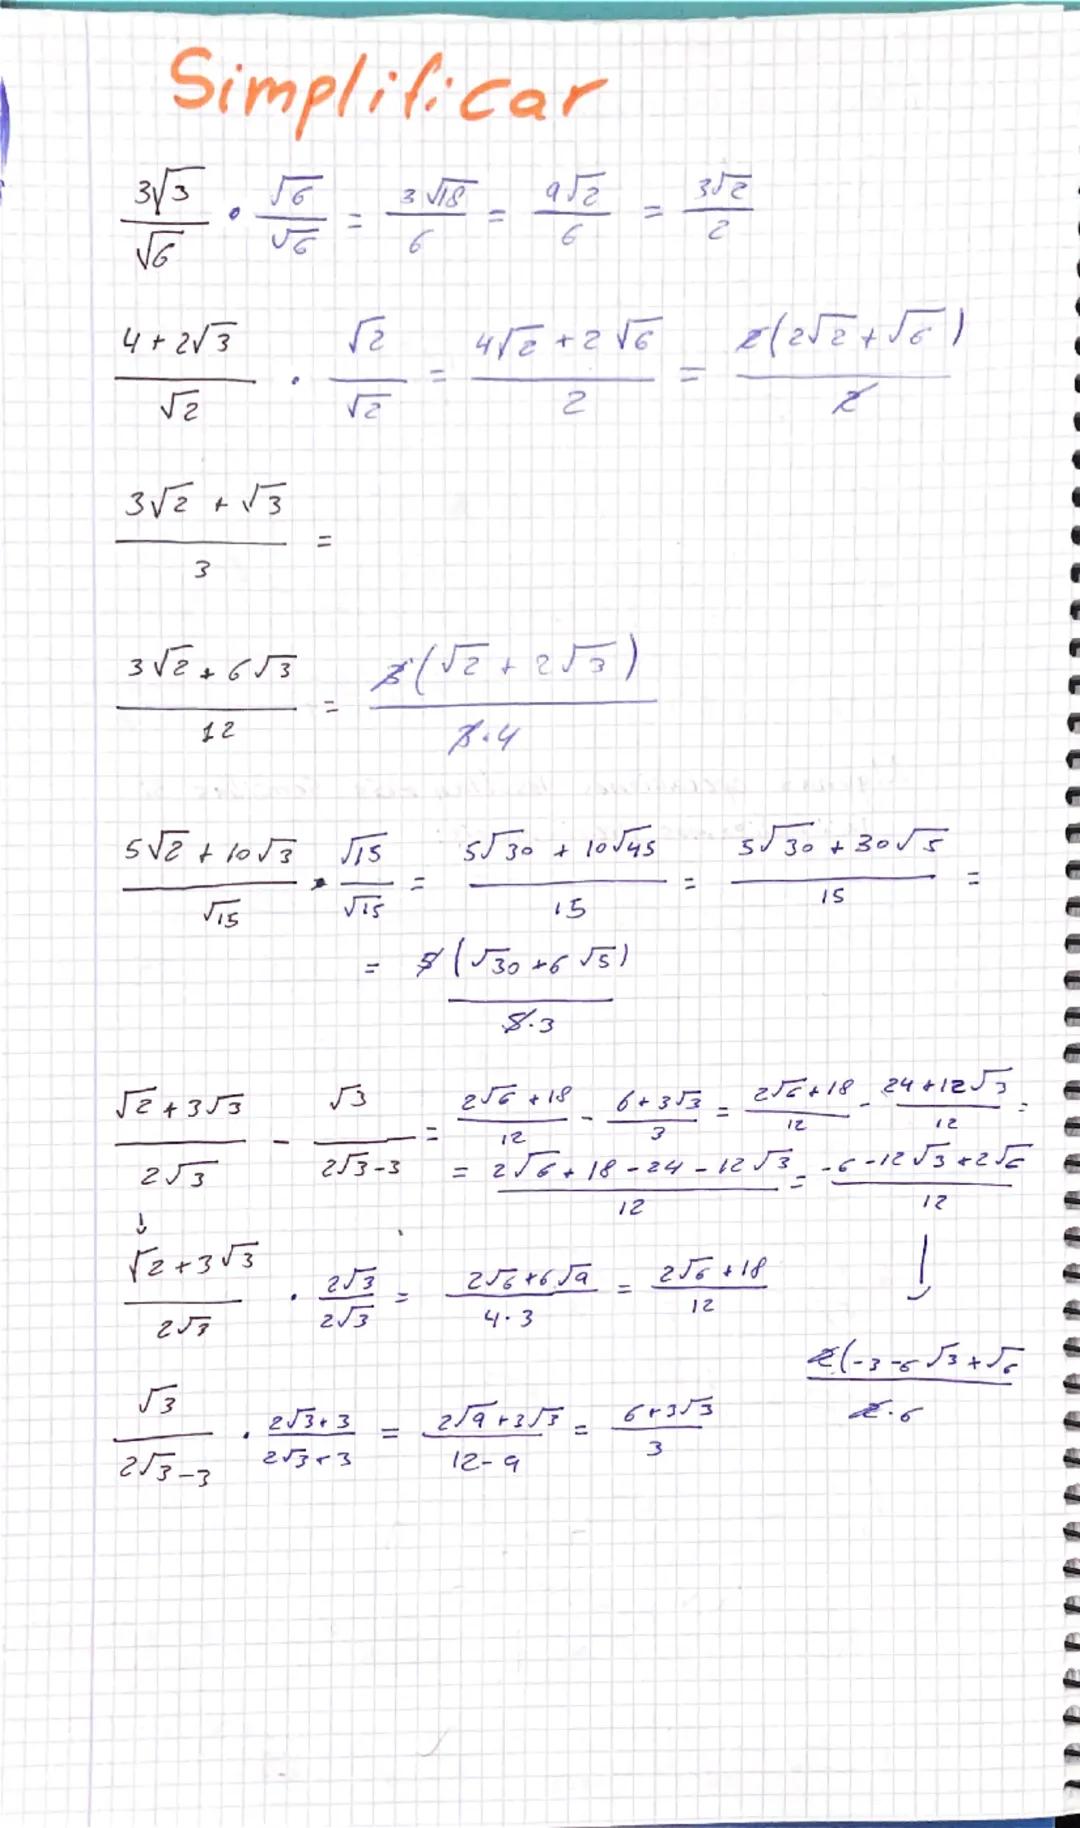 Simplificar
3√3/√6 · √6/√6 = 3√18/6 = 9√2/6 = 3√2/2
(4 + 2√3)/√2 · √2/√2 = (4√2 + 2√6)/2 = 2(2√2 + √6)/2
(3√2 + √3)/3 =
(3√2 + 6√3)/12 = 3(√2 + 2√3)/(3·4)
(5√2 + 10√3)/√15 · √15/√15 = (5√30 + 10√45)/15 = (5√30 + 30√5)/15 =
= 5(√30 + 6√5)/(5·3)
(√2 + 3√3)/(2√3) - √3/(2√3-3) = (2√6 + 18)/12 - (6 + 3√3)/3 = (2√6 + 18)/12 - (24 + 12√3)/12 =
= (2√6 + 18 - 24 - 12√3)/12 = (-6 - 12√3 + 2√6)/12
↓
(√2 + 3√3)/(2√3) · 2√3/2√3 = (2√6 + 6√9)/(4·3) = (2√6 + 18)/12
2(-3 - 6√3 + √6/(2·6)
√3/(2√3-3) · (2√3+3)/(2√3+3) = (2√9 + 3√3)/(12-9) = (6 + 3√3)/3